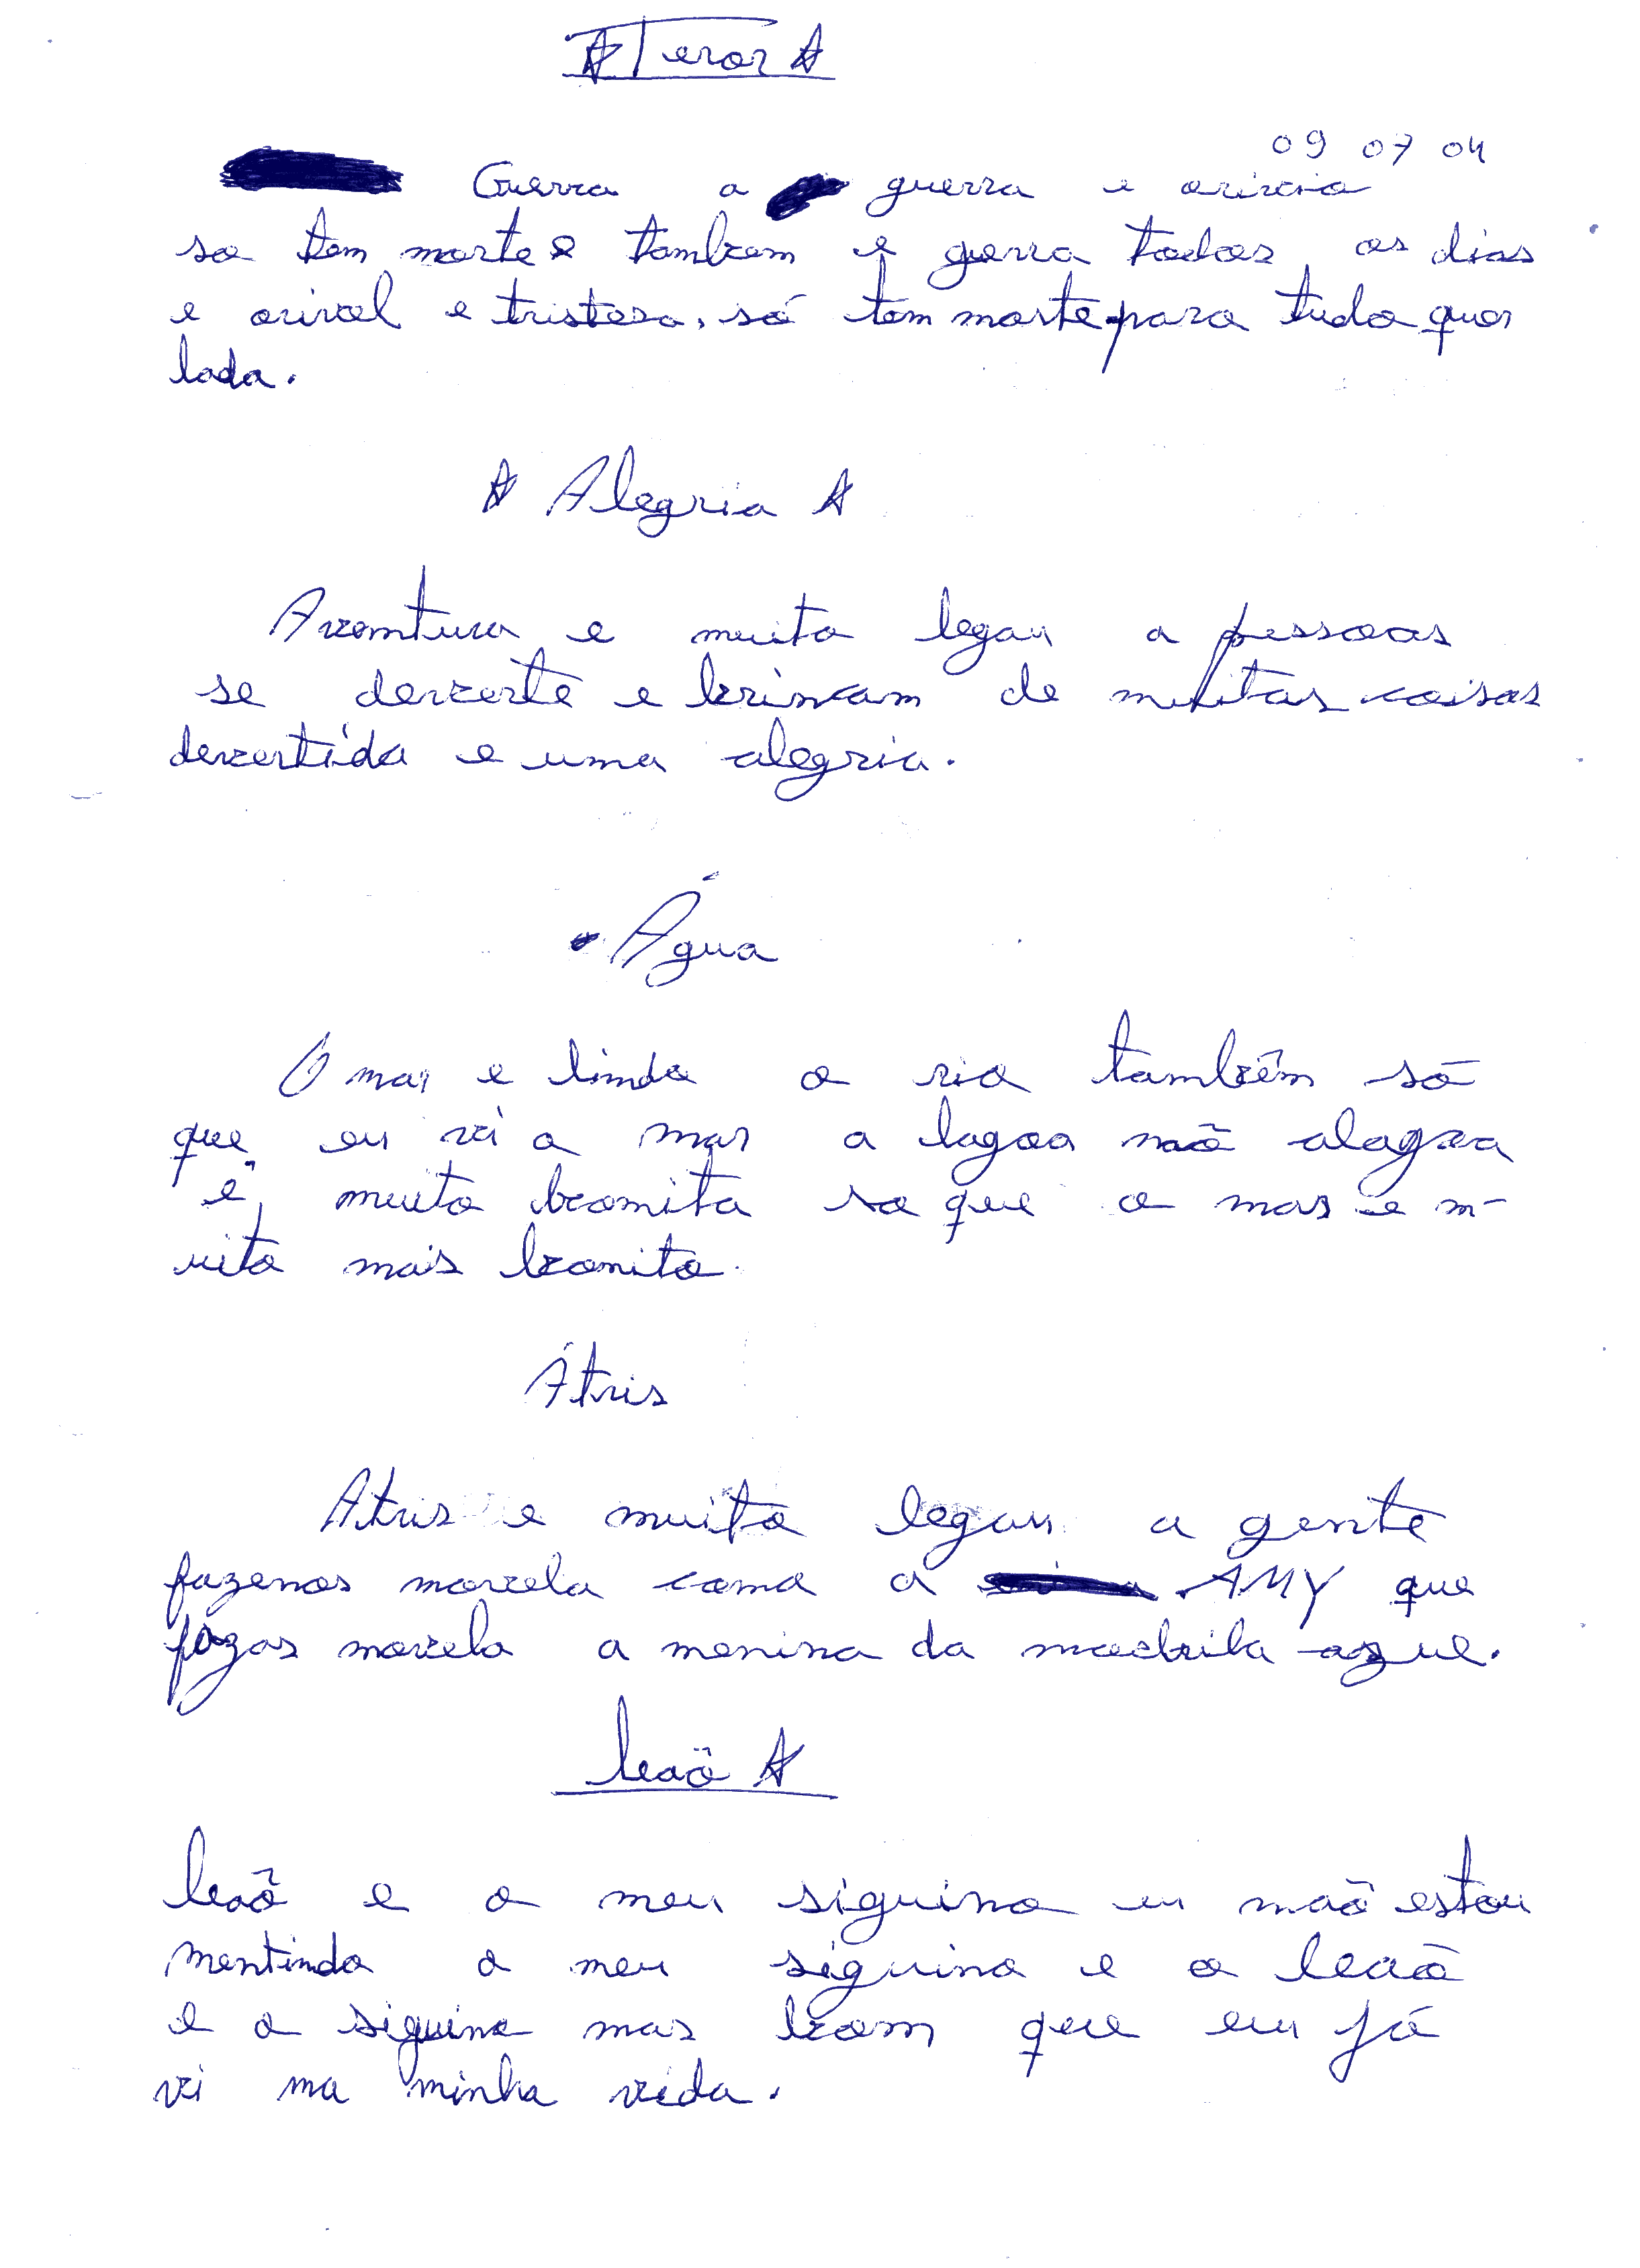 Teror
09 07 04
Guerra a guerra e
so tem morte e tambem e gerra todos os dias
e orivel e tristeso, só tem morte para tudo quor
lado.
Alegria
Aventura e muito legau a pessoas
se deverte e brincam de muitas coisas
devertida e uma alegria.
Água
O mar e lindo o rio também só
que eu vi o mar a lagoa naõ
é muito bonita so que o mar e m-
uito mais bonito.
Átris
Atris e muito legau a gente
fazemos novela como a AMY que
fazas novela a menina da mochila azue.
leaõ
leaõ e o meu siguino eu naõ estou
mentindo o meu siguino e o leaõ
e o siguino mas bom que eu já
vi na minha vida.